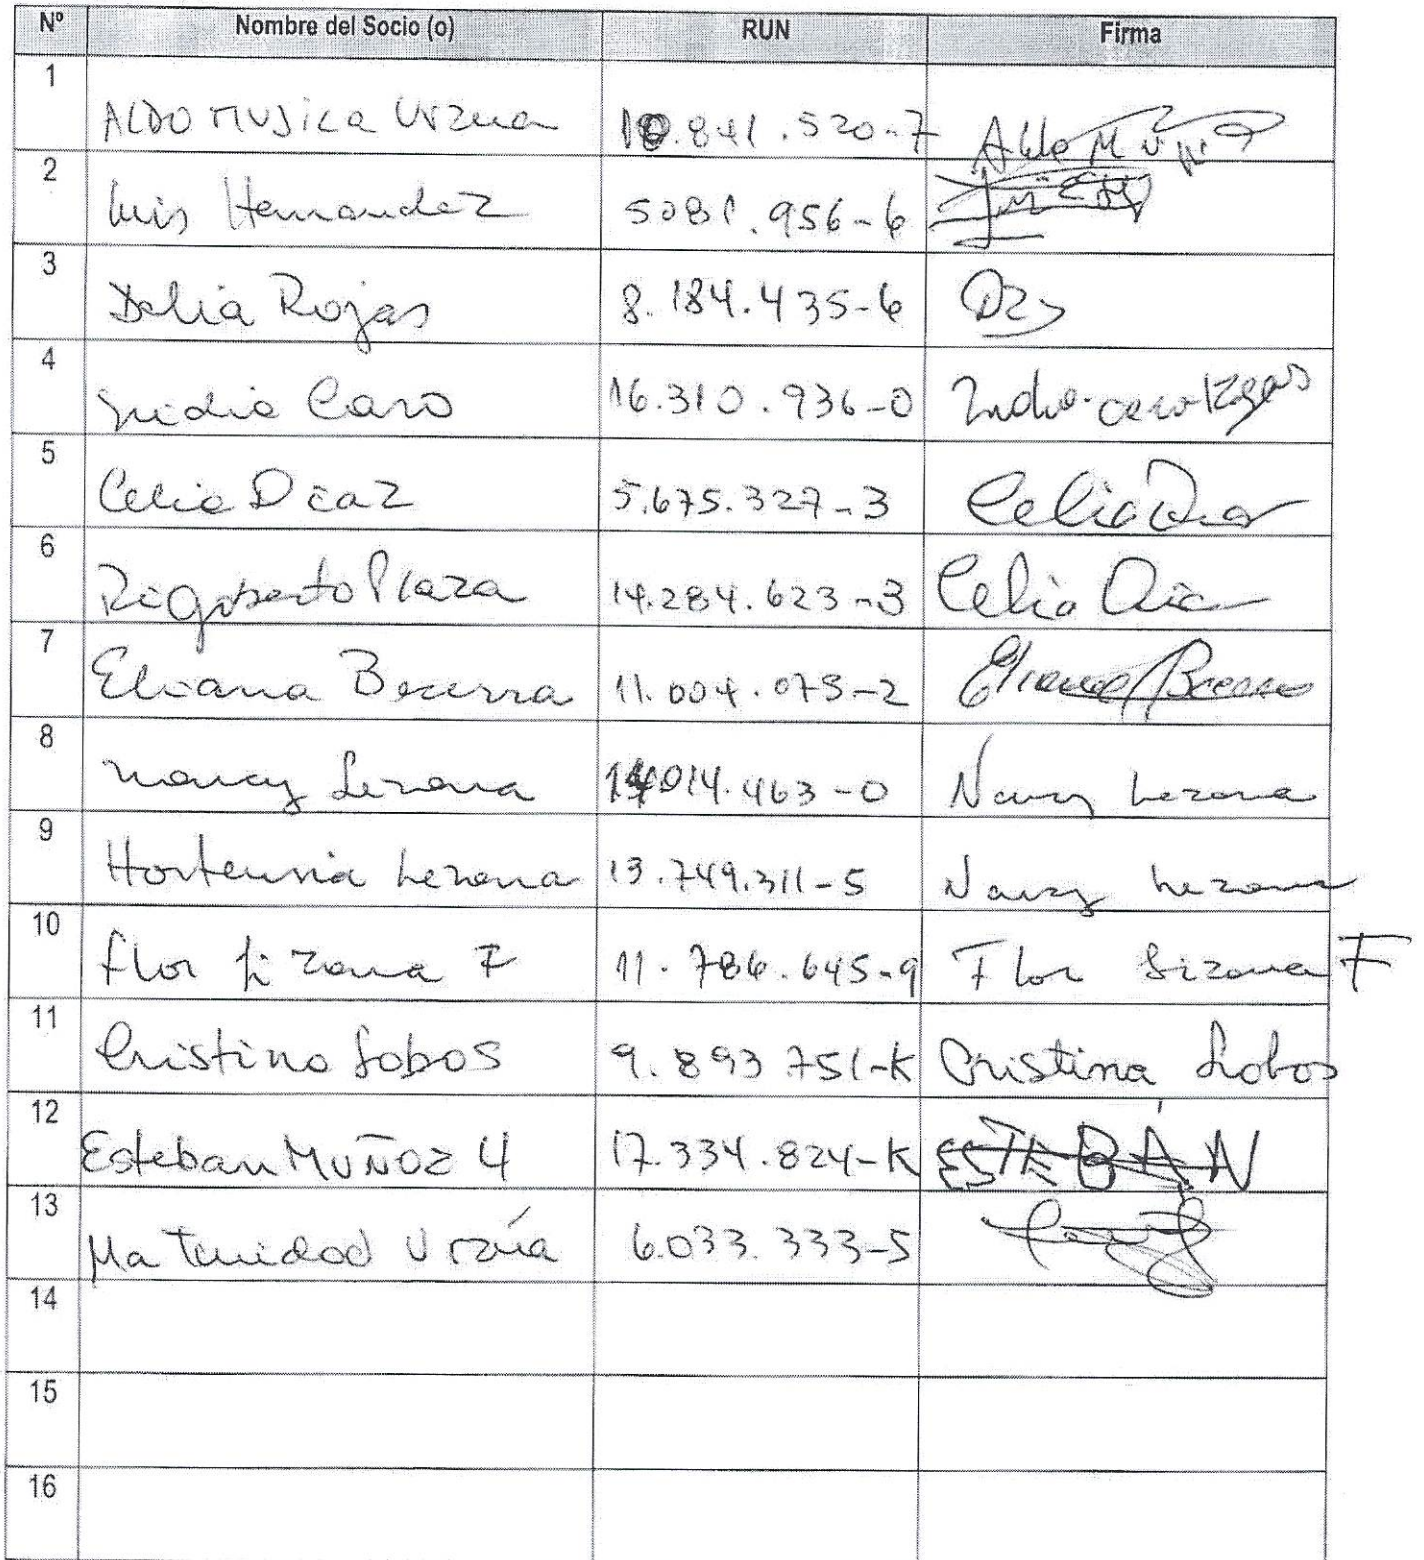 Nº Nombre del Socio (o) RUN Firma
1 ALDO MUJICA Urzua 10.841.520-7 Aldo
2 Luis Hernandez 5081.956-6
3 Delia Rojas 8.184.435-6
4 Caro 16.310.936-0
5 Celia Diaz 5.675.327-3 Celia Diaz
6 Rigoberto Plaza 14.284.623-3 Celia Diaz
7 Eliana Becerra 11.004.073-2 Eliana Becerra
8 Nancy Lezana 014.463-0 Nancy Lezana
9 Hortensia Lezana 13.749.311-5 Nancy Lezana
10 Flor Lizana F 11.786.645-9 Flor Lizana F
11 Cristina Lobos 9.893 751-K Cristina Lobos
12 Esteban MUÑOZ 4 17.334.824-K ESTEBÁN
13 Ma Trinidad Urzúa 6.033.333-5
14
15
16